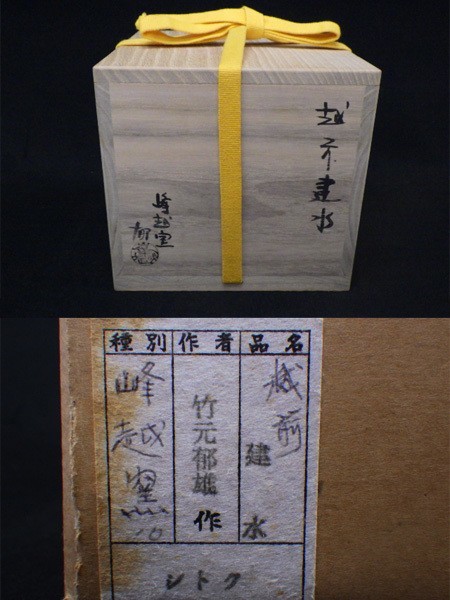 越前建水
峰越窯
種別
作者
品名
越前
建水
竹元郁雄
作
峰越窯
シトク